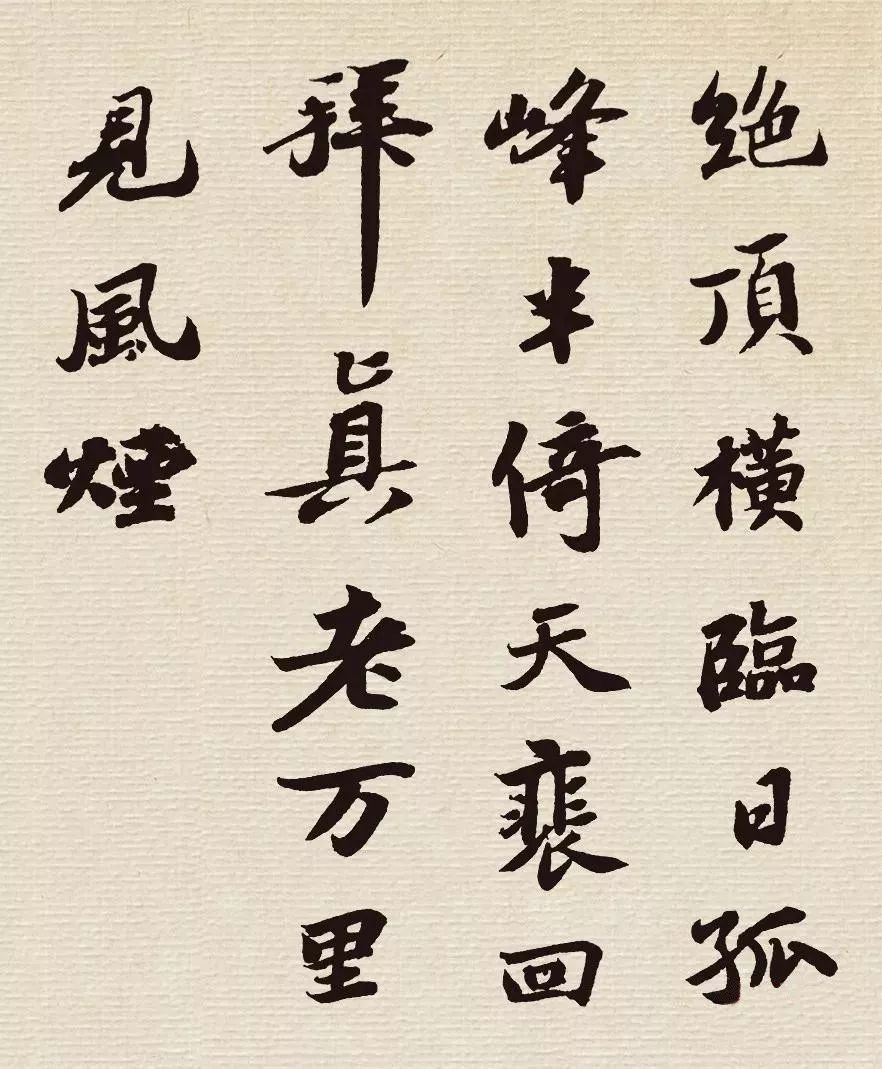 絶頂橫臨日孤
峰半倚天裴回
拜真老万里
見風煙